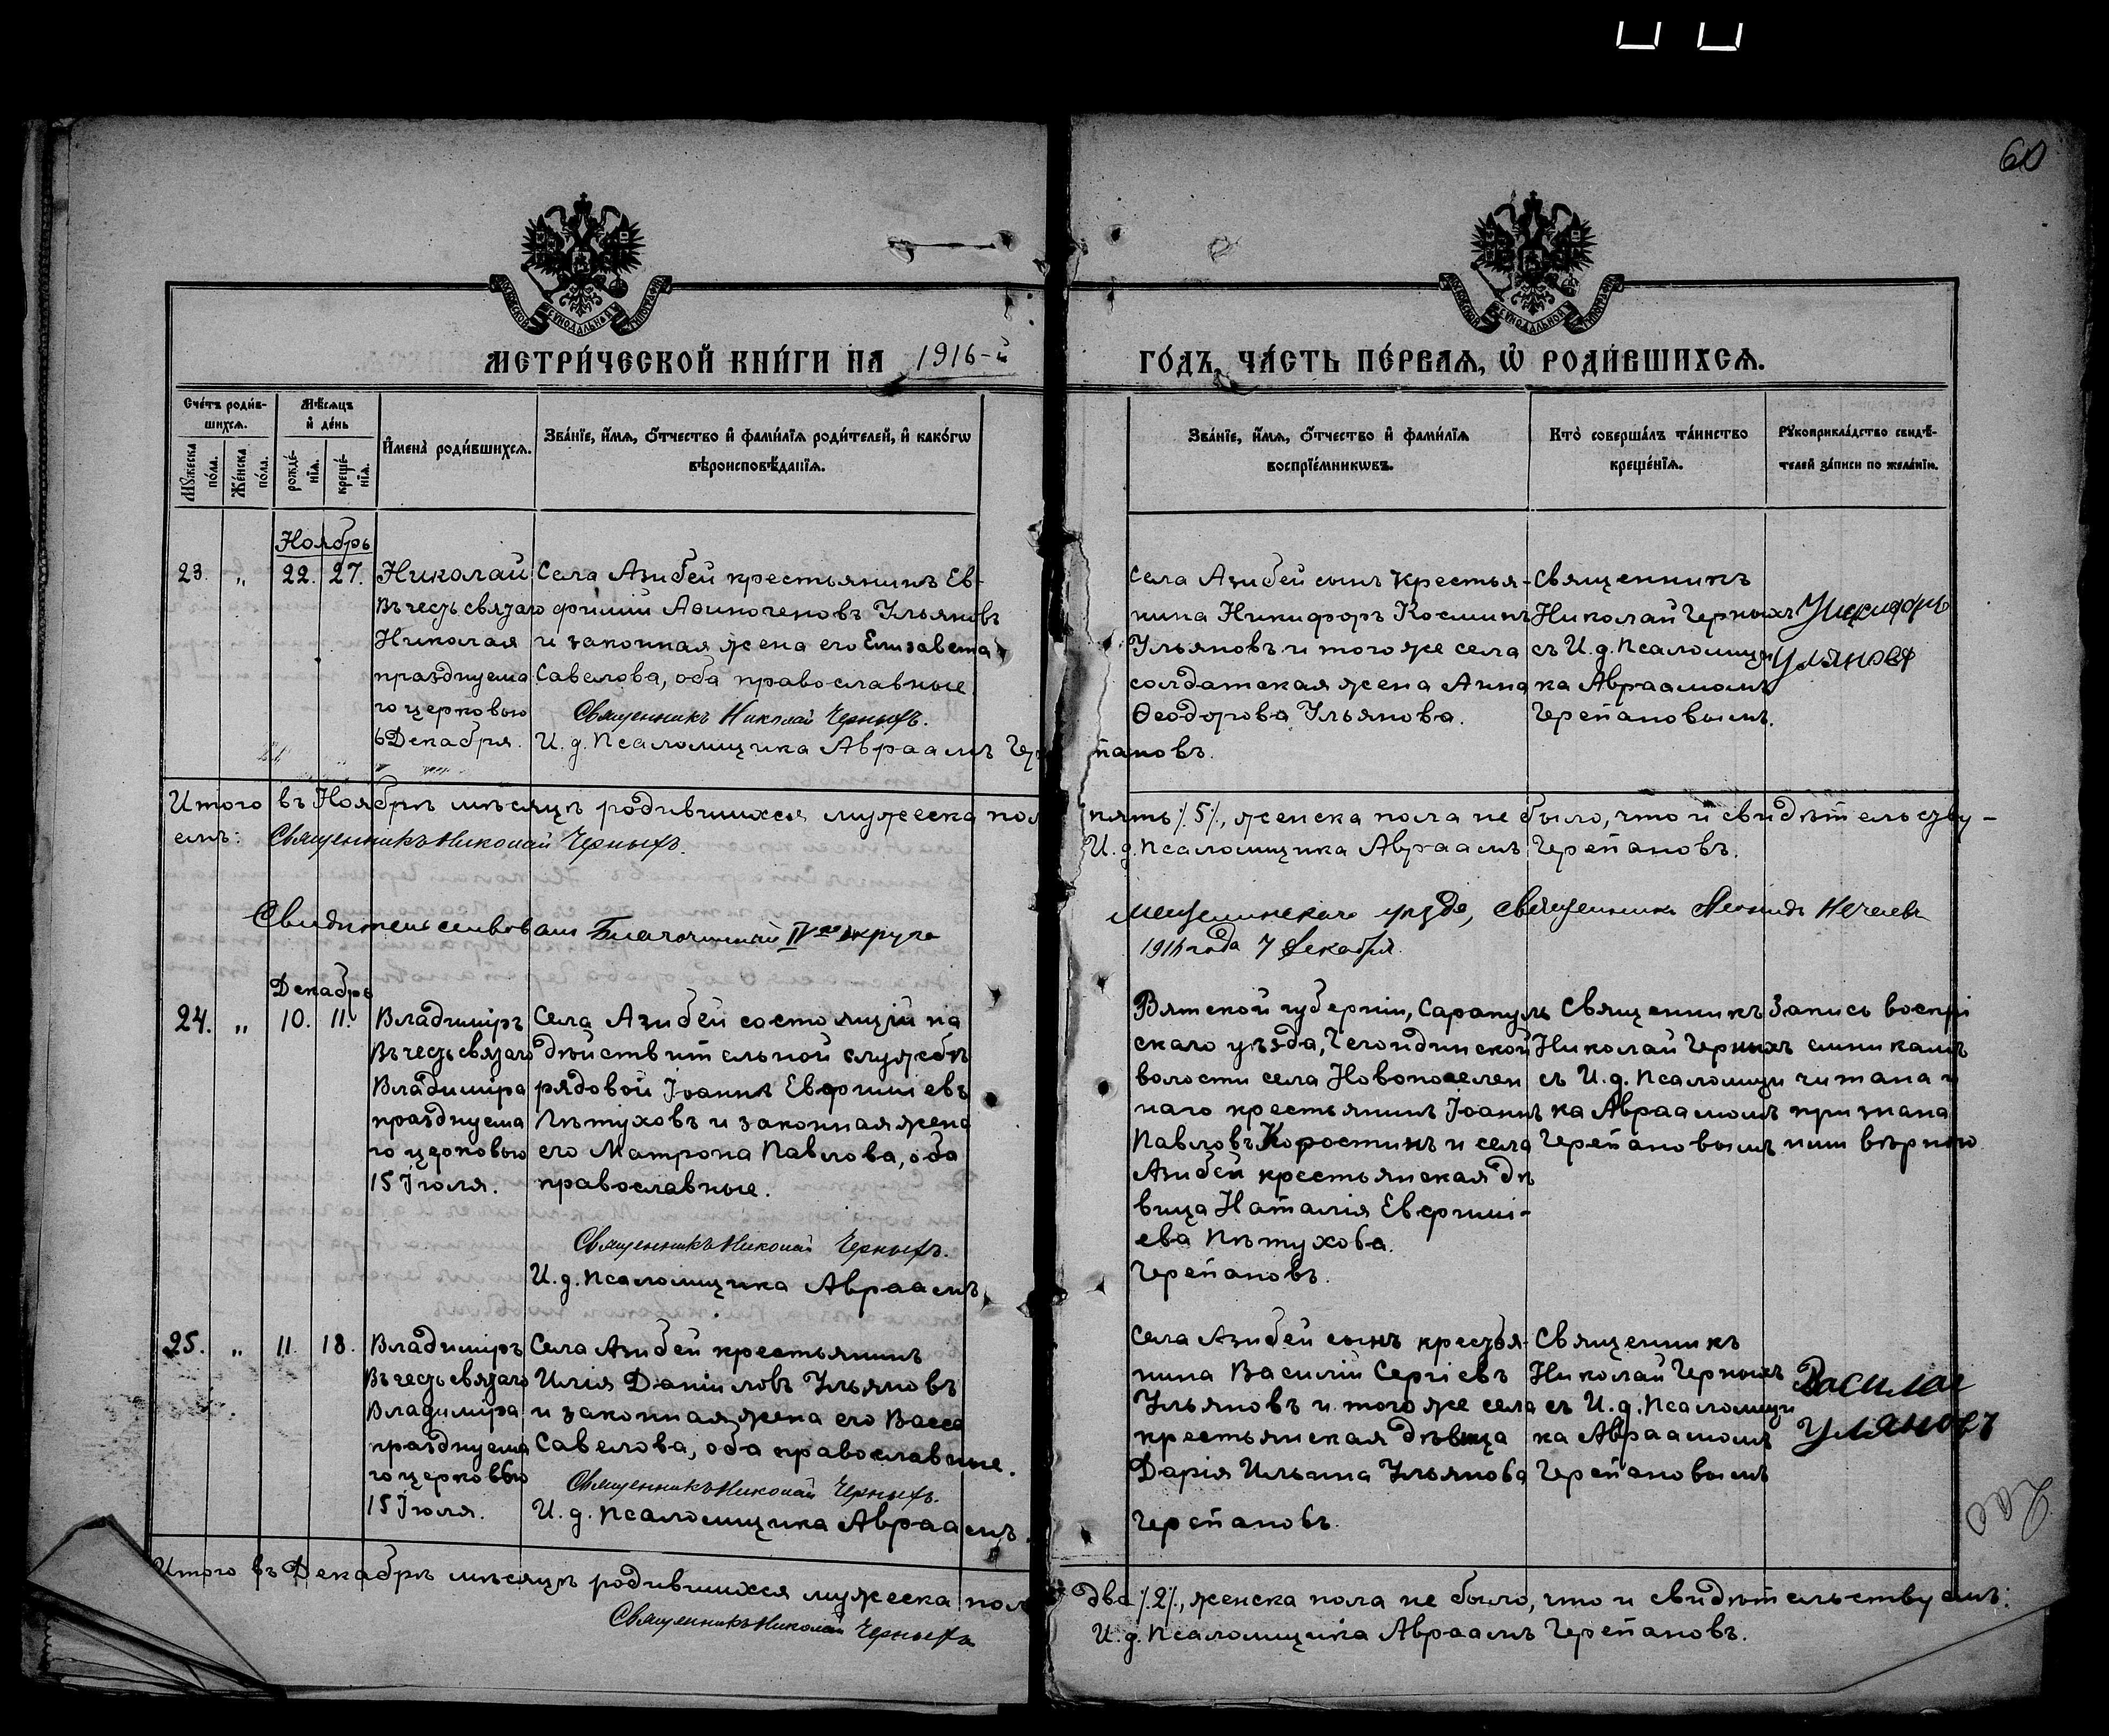 60
МОСКОВСКОЙ СѴНОДАЛЬНОЙ ТИПОГРАФІИ
МОСКОВСКОЙ СѴНОДАЛЬНОЙ ТИПОГРАФІИ
МЕТРИ́ЧЕСКОЙ КНИ́ГИ НА 1916-й ГО́ДЪ, ЧА́СТЬ ПЕ́РВАѦ, Ѡ҆ РОДИ́ВШИХСѦ.
Сче́тъ роди́в-
шихсѧ.
Мꙋ́жеска по́ла.
Же́нска по́ла.
Мѣ́сѧцъ
и҆ де́нь
рожде́-
нїѧ.
креще́-
нїѧ.
И҆мена̀ роди́вшихсѧ.
Зва́нїе, и҆́мѧ, ѻ҆́тчество и҆ фами́лїѧ роди́телей, и҆ како́гѡ
вѣроисповѣ́данїѧ.
Зва́нїе, и҆́мѧ, ѻ҆́тчество и҆ фами́лїѧ
воспрїе́мникѡвъ.
Кто̀ соверша́лъ та́инство
креще́нїѧ.
Рꙋкоприкла́дство свидѣ́-
телей за́писи по жела́нїю.
Ноябрь
23. „ 22. 27.
Николай
Въ честь святаго
Николая
празднуема
го церковью
6 Декабря.
Села Азибей крестьянинъ Ев-
фимій Аѳиногеновъ Ульяновъ
и законная жена его Елизавета
Савелова, оба православные
Священникъ Николай Черныхъ.
И. д. Псаломщика Авраамъ Черепановъ.
Села Азибей сынъ крестья-
нина Никифоръ Косминъ
Ульяновъ и того же села
солдатская жена Анна
Ѳеодорова Ульянова.
Священникъ
Николай Черныхъ
съ И. д. Псаломщи
ка Авраамомъ
Черепановымъ.
Улянова
Итого въ Ноябрѣ мѣсяцѣ родившихся мужеска пола пять /.5/., женска пола не было, что и свидѣтельству-
емъ: Священникъ Николай Черныхъ. И. д. Псаломщика Авраамъ Черепановъ.
Свидѣтельствовалъ Благочинный IV го округа Мензелинскаго уѣзда, священникъ Леонидъ Нечаевъ
1916 года 7 Декабря.
Декабрь
24. „ 10. 11.
Владиміръ
Въ честь святаго
Владиміра
празднуема
го церковью
15 Іюля.
Села Азибей состоящій на
дѣйствительной службѣ
рядовой Іоаннъ Евфиміевъ
Пѣтуховъ и законная жена
его Матрона Павлова, оба
православные.
Священникъ Николай Черныхъ.
И. д. Псаломщика Авраамъ
Вятской губерніи, Сарапуль
скаго уѣзда, Чегандинской
волости села Новопоселен
наго крестьянинъ Іоаннъ
Павловъ Коростинъ и села
Азибей крестьянская дѣ
вица Наталія Евфими-
ева Пѣтухова.
Черепановъ.
Священникъ
Николай Черныхъ
съ И. д. Псаломщи
ка Авраамомъ
Черепановымъ
Запись воспрі
емникамъ
читана и
признана
ими вѣрною
25. „ 11. 18.
Владиміръ
Въ честь святаго
Владиміра
празднуема
го церковью
15 Іюля.
Села Азибей крестьянинъ
Илія Даніиловъ Ульяновъ
и законная жена его Васса
Савелова, оба православные.
Священникъ Николай Черныхъ.
И. д. Псаломщика Авраамъ
Села Азибей сынъ крестья-
нина Василій Сергіевъ
Ульяновъ и того же села
крестьянская дѣвица
Дарія Ильина Ульянова
Черепановъ.
Священникъ
Николай Черныхъ
съ И. д. Псаломщи
ка Авраамомъ
Черепановымъ
Василей
Уляновъ
Итого въ Декабрѣ мѣсяцѣ родившихся мужеска пола два /.2/., женска пола не было, что и свидѣтельствуемъ:
Священникъ Николай Черныхъ И. д. Псаломщика Авраамъ Черепановъ.